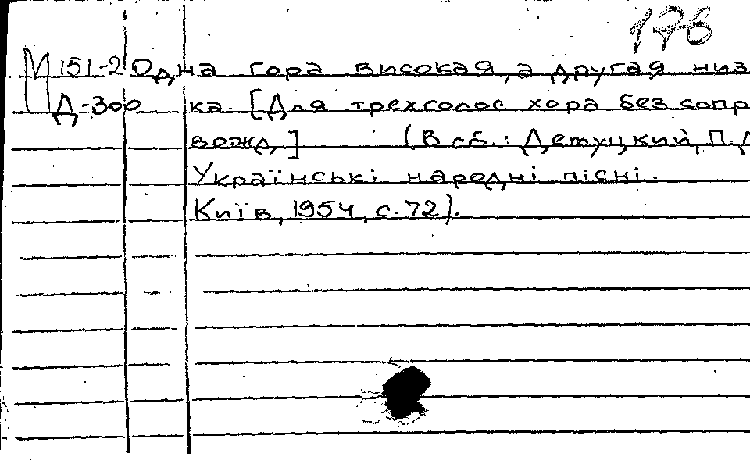 176
М 151-2 Одна гора висока я, а другая низ
Д-300 ка. [Для трехголос хора без сопр
вожд.] (В сб.: Демуцкий, П.Д
Українські народні пісні.
Київ, 1954, с. 72).